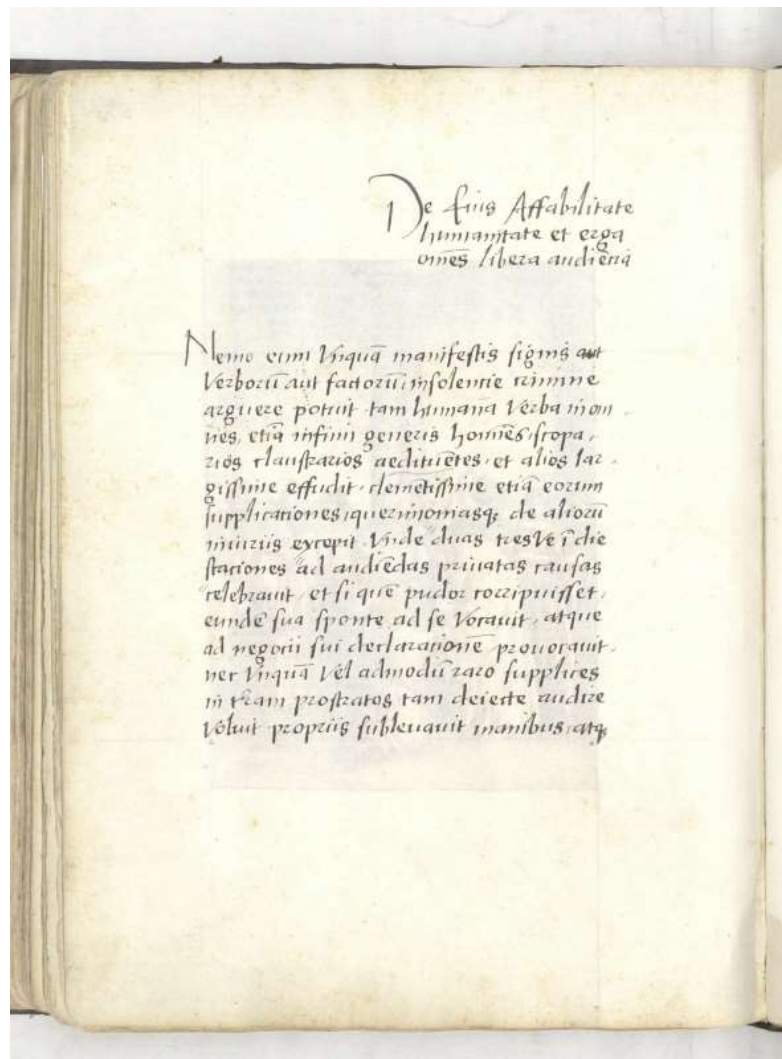 De Eius Affabilitate
humanitate et erga
oмēs libera audiētia
Nemo eum Vnquā manifestis signis aut
Verborū aut factorū, insolentie crimine
arguere potuit tam humana Verba in om
nes, etiā infimi generis homēs, scopa,
rios claustrarios aedituētes, et alios lar
gissime effudit, clemētissime etiā eorum
supplicationes, querimoniasqꝫ de aliorū
iniuriis excepit Vnde duas tresVe ī die
stationes ad audiēdas priuatas causas
celebrauit, et si quē pudor corripuisset,
eundē sua sponte ad se Vocauit, atque
ad negocii sui declarationē prouocauit,
nec Vnquā Vel admodū raro supplices
in tr̄am prostratos tam deiecte audire
Voluit propriis subleuauit manibus, atqꝫ